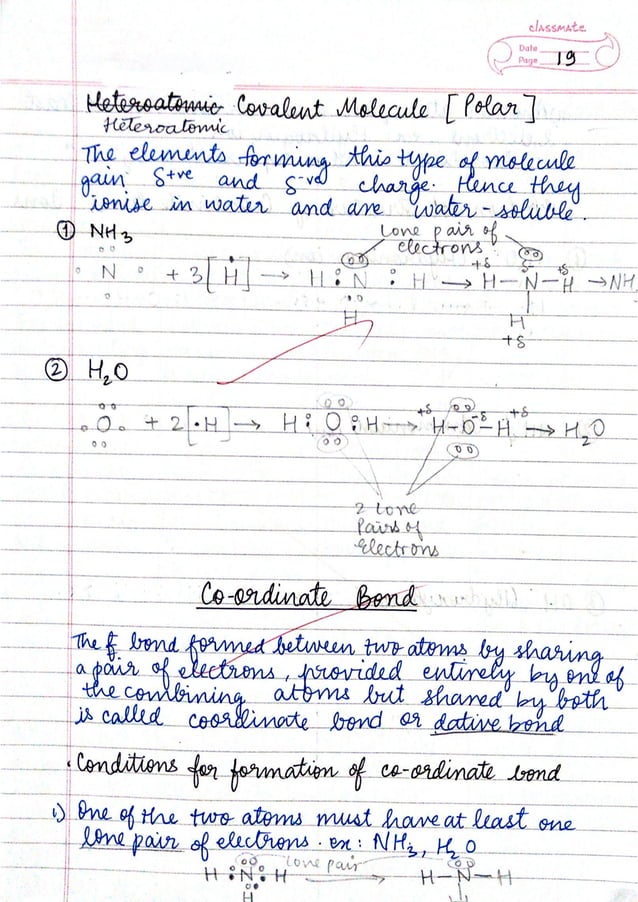 classmate
Date
Page 19
Heteroatomic Covalent Molecule [Polar]
Heteroatomic
The elements forming this type of molecule
gain δ+ve and δ-ve charge. Hence they
ionise in water and are water-soluble.
① NH3
Lone pair of
electrons
N + 3[H] → H : N : H → +δ H–N–H +δ → NH
δ-
H H
+δ
② H2O
O + 2[•H] → H : O : H → +δ H–O-δ–H +δ → H2O
2 lone
Pairs of
Electrons
Co-ordinate Bond
The bond formed between two atoms by sharing
a pair of electrons, provided entirely by one of
the combining atoms but shared by both
is called coordinate bond or dative bond
• Conditions for formation of co-ordinate bond
i) One of the two atoms must have at least one
lone pair of electrons. ex: NH3, H2O
lone pair
H : N : H → H–N–H
H